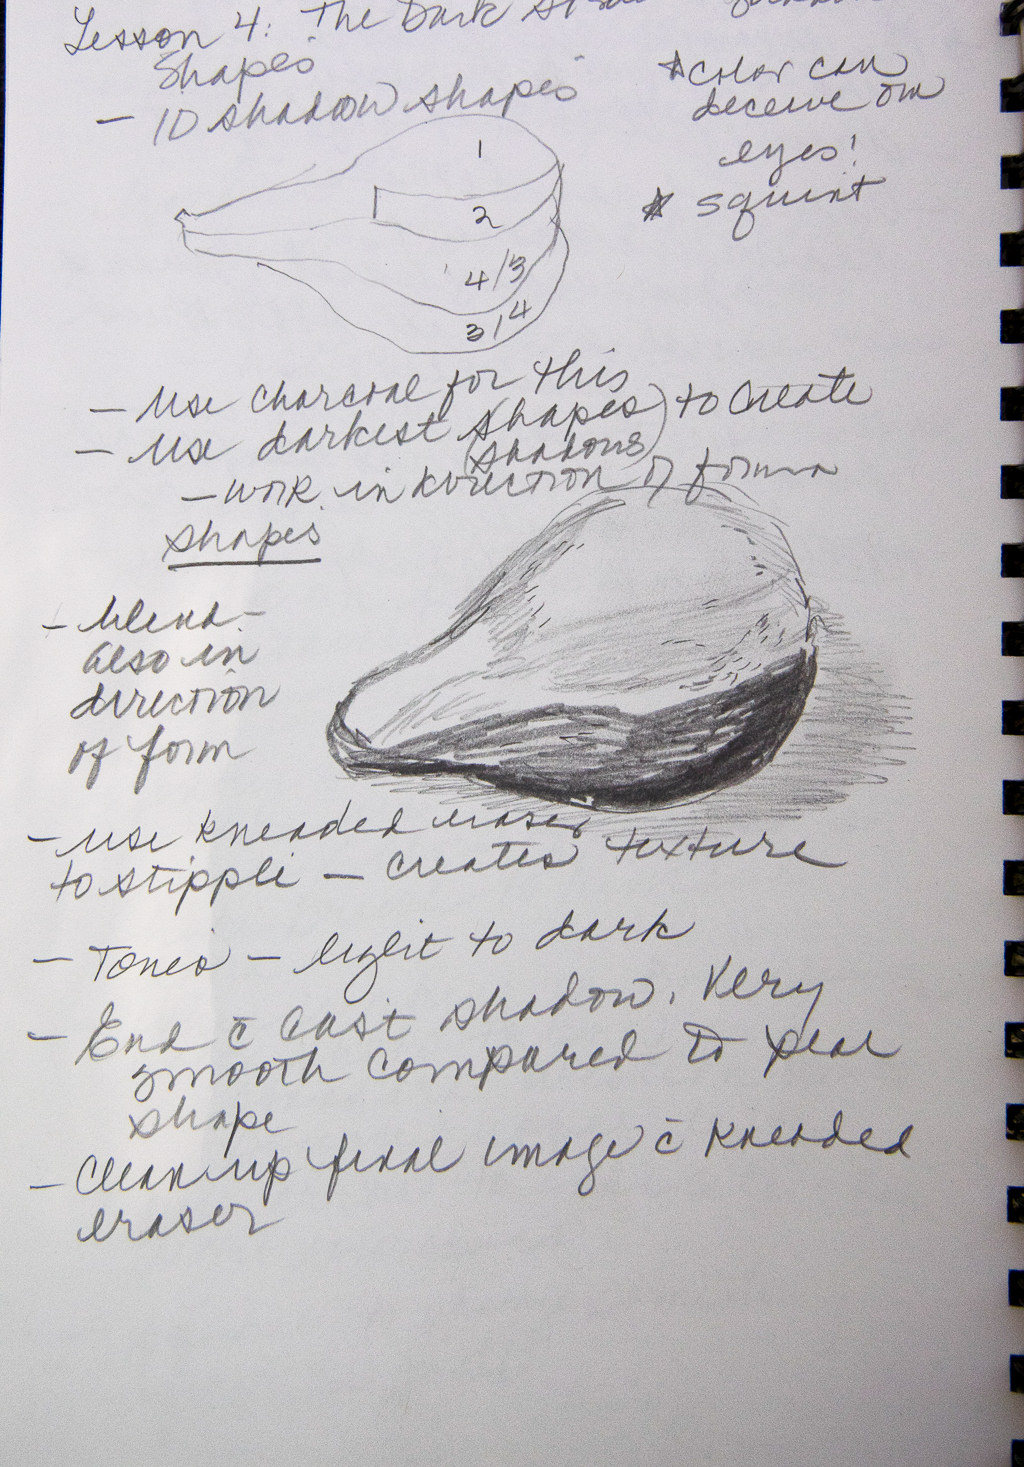 Lesson 4: The Dark
Shapes
- ID shadow shapes
* color can
deceive our
eyes!
* squint
1
2
4/3
3/4
- Use charcoal for this
- Use darkest shapes to create
(shadows)
- work in direction of form
shapes
- blend -
also in
direction
of form
- use kneaded eraser
to stipple - creates texture
- Tones - light to dark
- End c̄ cast shadow. Very
smooth compared to pear
shape
- Clean up final image c̄ kneaded
eraser